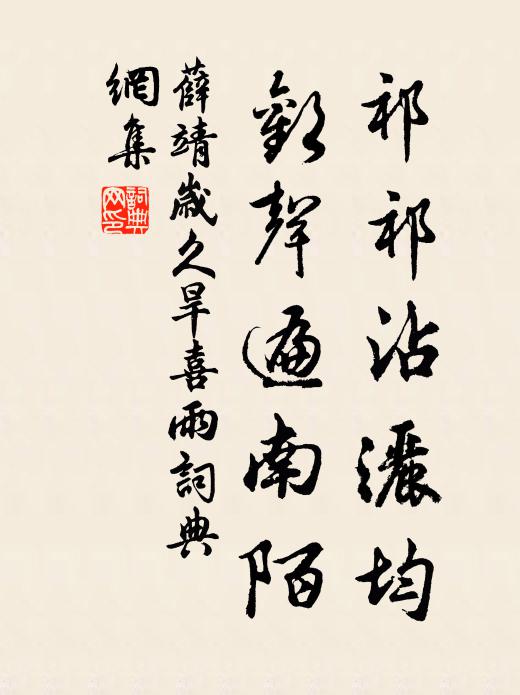 祁祁沾灑均
歡聲遍南陌
薛靖歲久旱喜雨詞典
網集
詞典
网印